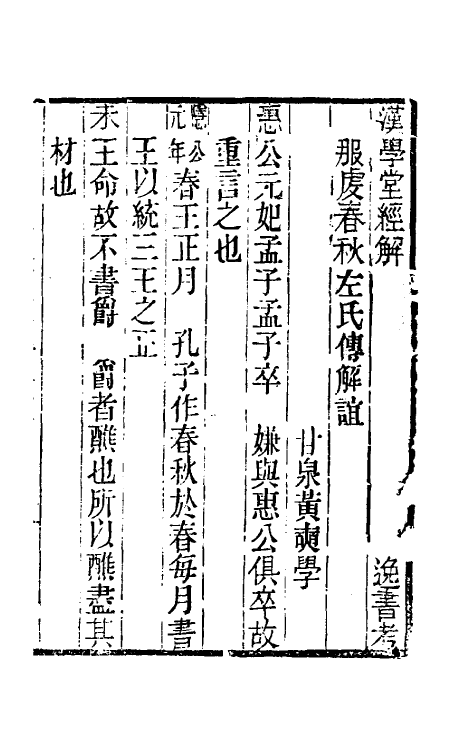 漢學堂經解　逸書考
服虔春秋左氏傳解誼
甘泉黃奭學
惠公元妃孟子孟子卒　嫌與惠公俱卒故
重言之也
隱公元年春王正月　孔子作春秋於春每月書
王以統三王之正
未王命故不書爵　爵者醮也所以醮盡其
材也